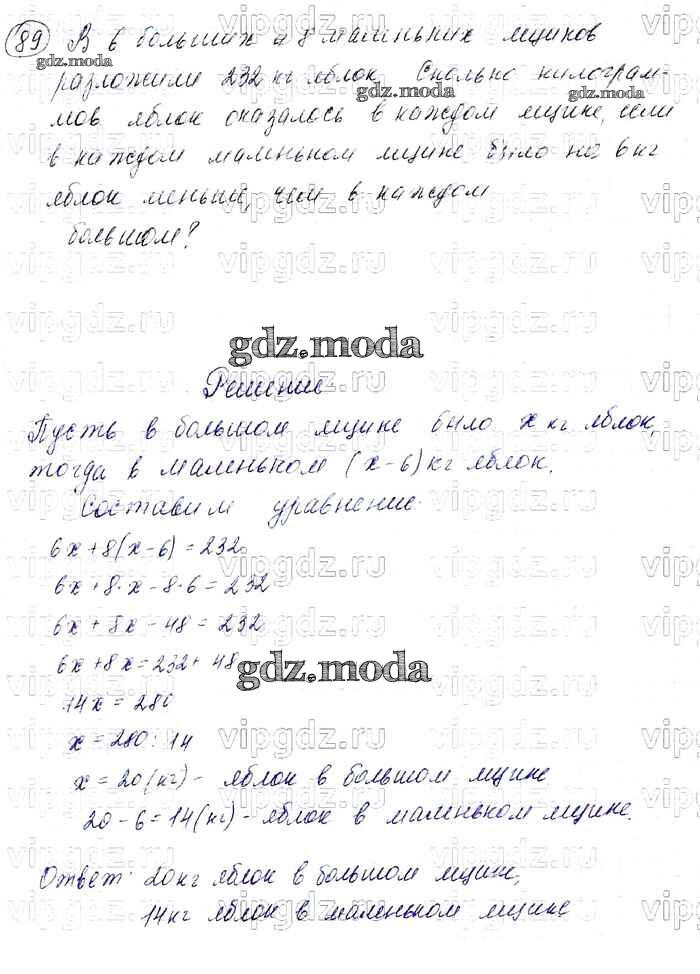 89 В 6 больших и 8 маленьких ящиков
разложили 232 кг яблок Сколько килограм-
мов яблок оказалось в каждом ящике, если
в каждом маленьком ящике было на 6 кг
яблок меньше, чем в каждом
большом?
gdz.moda
Решение
Пусть в большом ящике было x кг яблок,
тогда в маленьком (x-6) кг яблок.
Составим уравнение:
6x+8(x-6)=232
6x+8·x-8·6=232
6x+8x-48=232
6x+8x=232+48
gdz.moda
14x=280
x=280:14
x=20(кг)- яблок в большом ящике
20-6=14(кг)-яблок в маленьком ящике.
Ответ: 20кг яблок в большом ящике,
14кг яблок в маленьком ящике